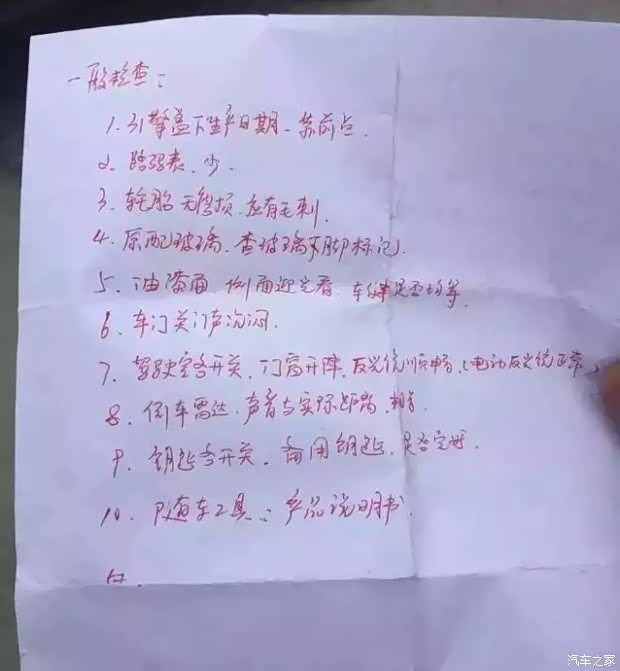 一般检查:
1. 引擎盖下生产日期、靠前点.
2. 路码表、少.
3. 轮胎无磨损、应有毛刺.
4. 原配玻璃、查玻璃下脚标记.
5. 油漆面、侧面迎光看、车缝是否均等.
6. 车门关门声沉闷.
7. 驾驶室各开关、门窗升降、反光镜顺畅、(电动反光镜正常)
8. 倒车雷达、声音与实际距离、相符.
9. 钥匙各开关、备用钥匙、是否完好.
10. 随车工具:产品说明书.
汽车之家